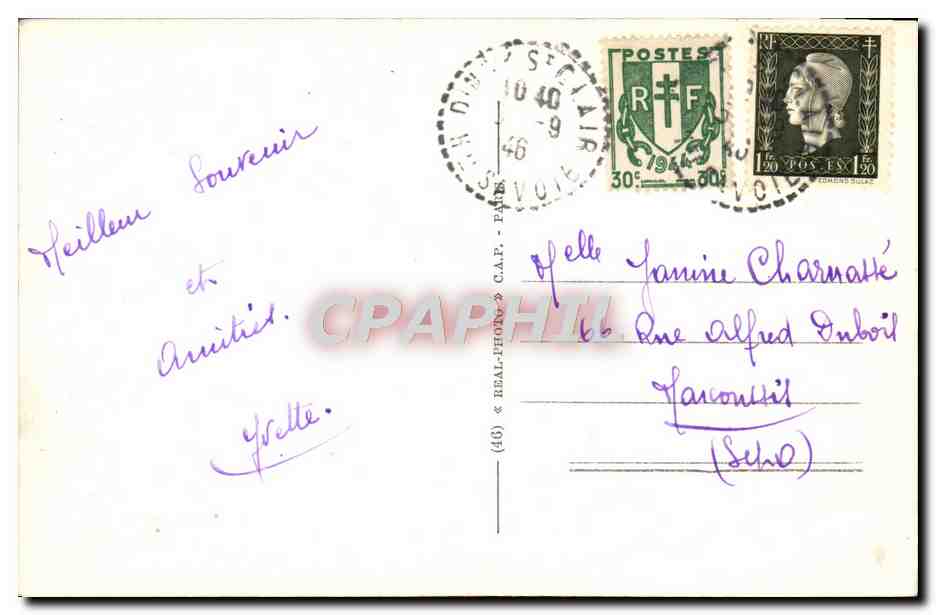 Meilleur Souvenir
et
Amitiés.
Yvette.
(46) « REAL-PHOTO » C.A.P. - PARIS
St CLAIR
10 40
-9
46
H-SAVOIE
POSTES
RF
1944
30c 30c
RF
1Fr.20 POSTES 1Fr.20
EDMOND DULAC
Melle Janine Charnassé
66 Rue Alfred Dubois
Marcoussis
(S et O)
CPAPHIL